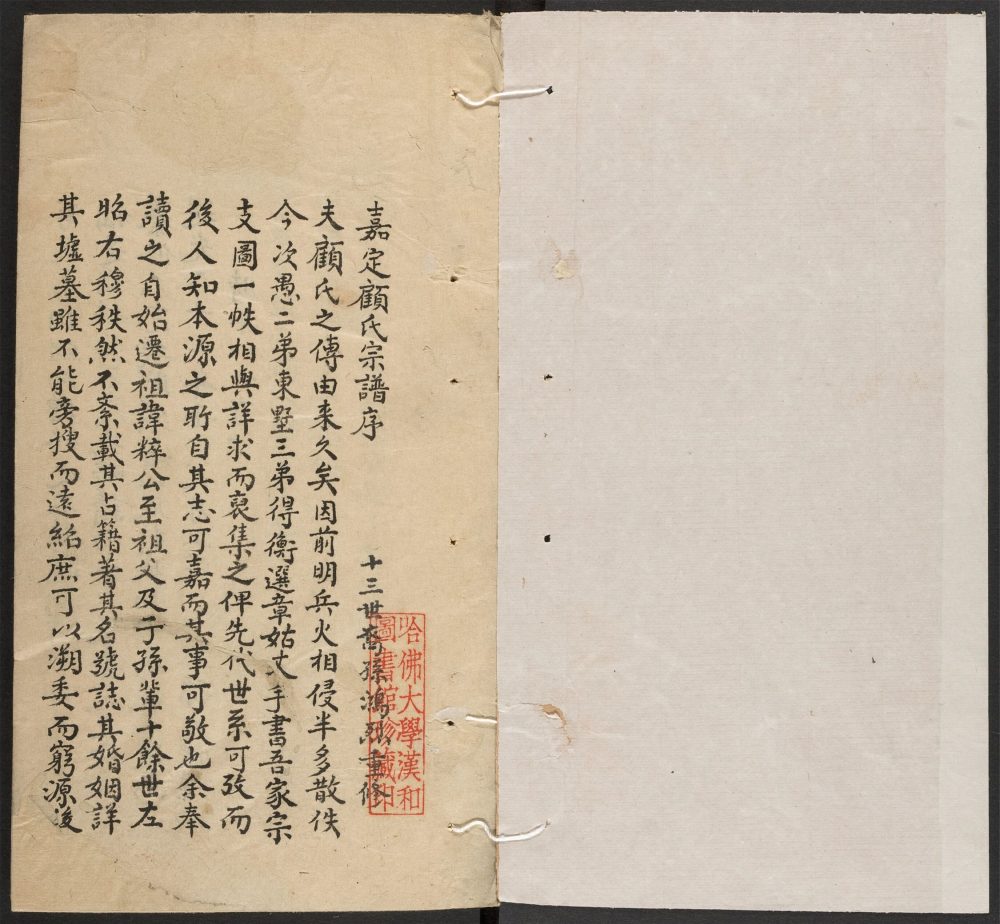 嘉定顧氏宗譜序
十三世裔孫鴻烈重修
夫顧氏之傳由来久矣因前明兵火相侵半多散佚
今次愚二弟東墅三弟得衡選章姑丈手書吾家宗
支圖一帙相與詳求而裒集之俾先代世系可攷而
後人知本源之所自其志可嘉而其事可敬也余奉
讀之自始遷祖諱粹公至祖父及子孫輩十餘世左
昭右穆秩然不紊載其占籍著其名號誌其婚姻詳
其墟墓雖不能旁搜而遠紹庶可以溯委而窮源後
哈佛大學漢和
圖書館珍藏印